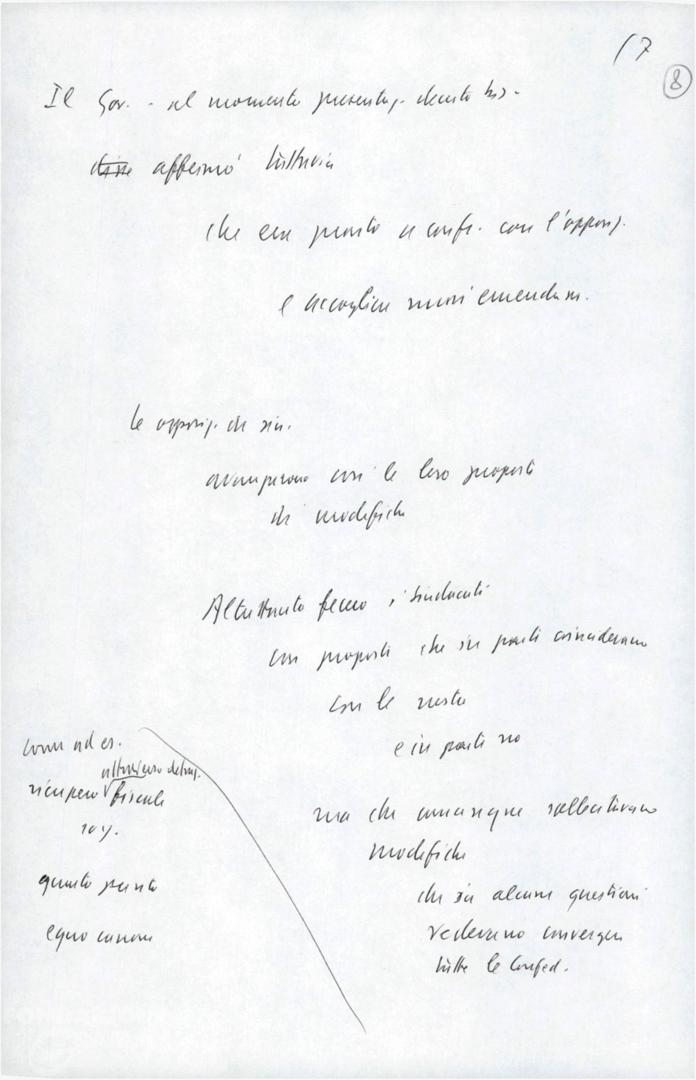 17
8
Il Gov. - al momento presentaz. decreto bis -
disse affermò tuttavia
che era pronto a confr. con l'oppos.
e accogliere nuovi emendam.
le opposiz. di sin.
avanzarono così le loro proposte
di modifiche
Altrettanto fecero i sindacati
con proposte che in parte coincidevano
con le nostre
e in parte no
ma che comunque sollecitavano
modifiche
che su alcune questioni
vedevano convergere
tutte le Confed.
come ad es.
ulteriore detraz.
recupero fiscale
quarto punto
equo canone